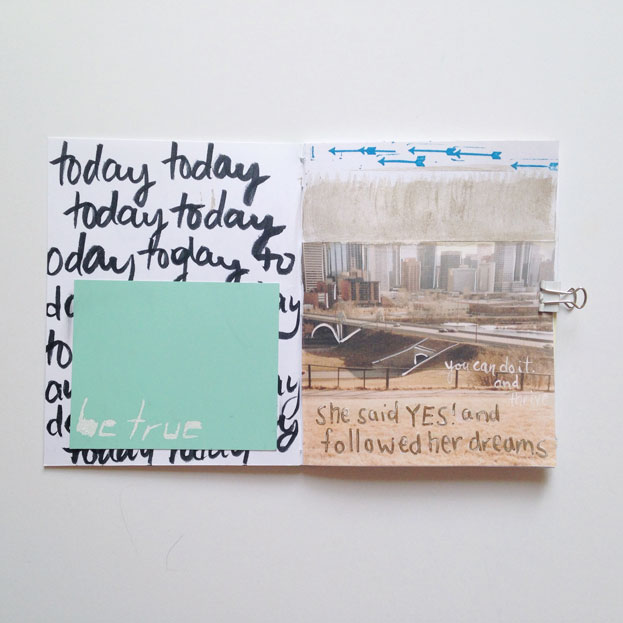 today today
today today
oday today to
do ay
to
ay
d
today today
be true
you can do it.
and
thrive
she said YES! and
followed her dreams